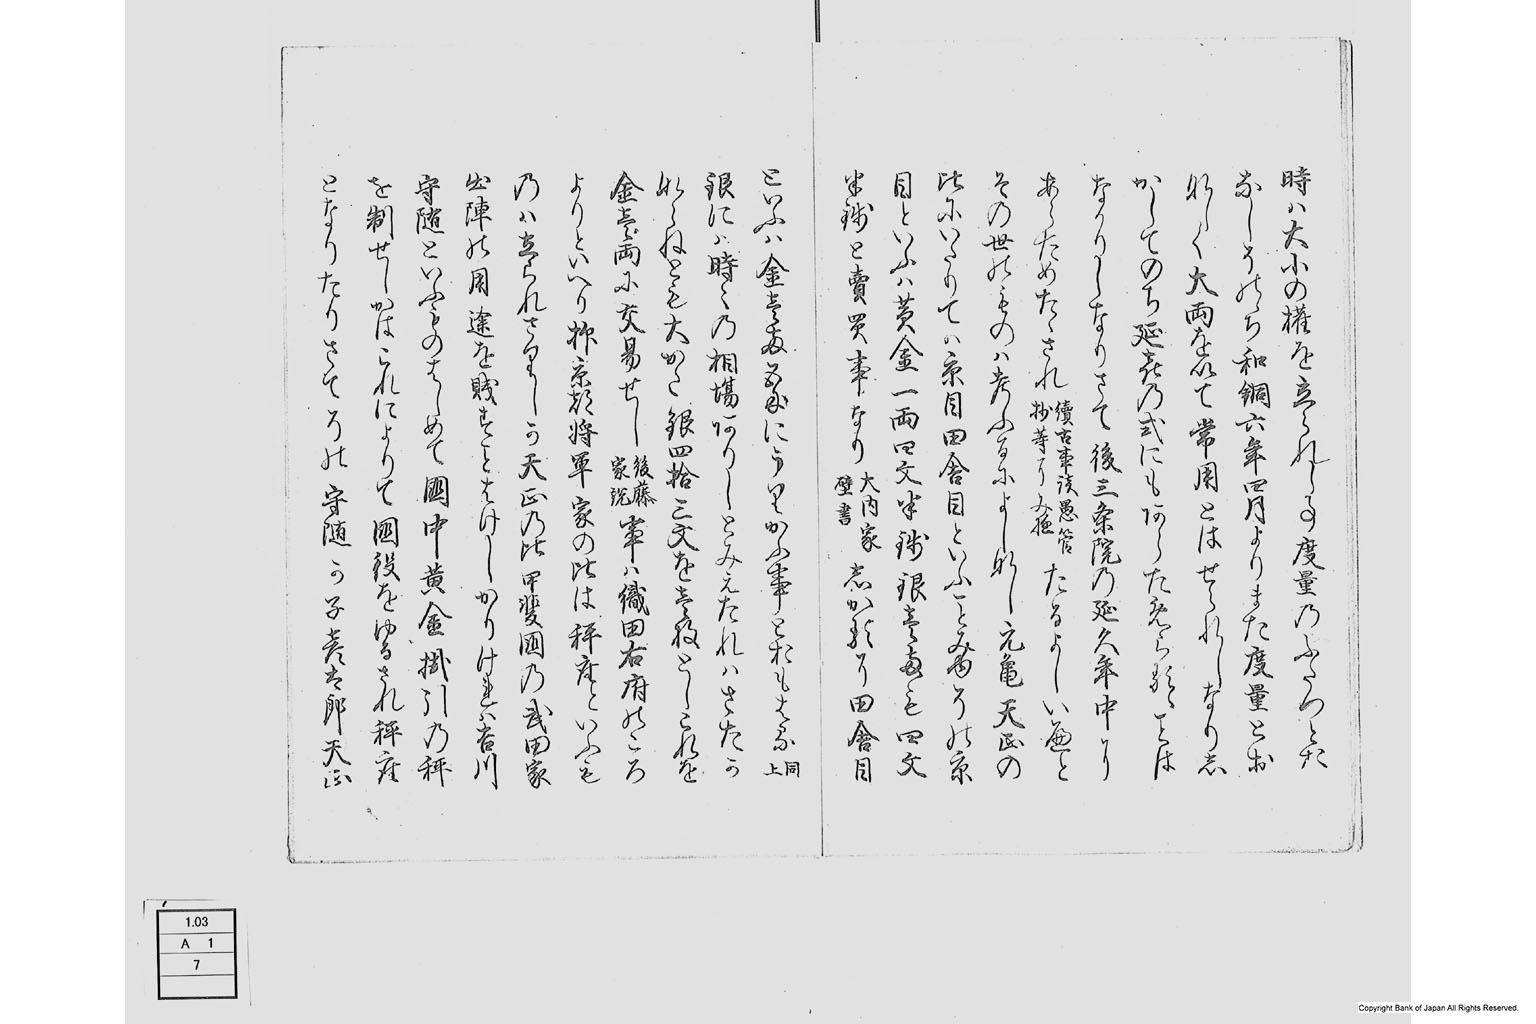 時ハ大小の權を立られしか度量乃ふたつをた
なしうのち和銅六年四月よりまた度量とお
しく大両を以て常用とはせられしなり し
かしてのち延喜乃式にもあらためらるゝことは
なかりしなりさて後三条院乃延久年中より
あらためたゝされ
續古事談愚管
抄等
たるよしいへと
その世のものハ考ふるによしなし元亀天正の
比にいたりてハ京目田舎目といふことみゆその京
目といふハ黄金一両四文半銭銀壱両も四文
半銭と賣買事なり
大内家
壁書
しかるに田舎目
といふハ金壱両
にうりかふ事とおもはる
同
上
銀にハ時々乃相場ありしとみえたれハさたか
ならねとも大かた銀四拾三文を壱枚としこれを
金壱両に交易せし
後藤
家説
事ハ織田右府のころ
よりといへり 京都将軍家の比は秤座といふも
乃ハ立られさりしか天正乃比甲斐國乃武田家
出陣の用途を賤
かりけれハ吉川
守随といふものはしめて國中黄金掛引乃秤
を制せしかはこれによりて國役をゆるされ秤座
となりたりさてその守随か子彦太郎天正
1.03
A 1
7
Copyright Bank of Japan All Rights Reserved.